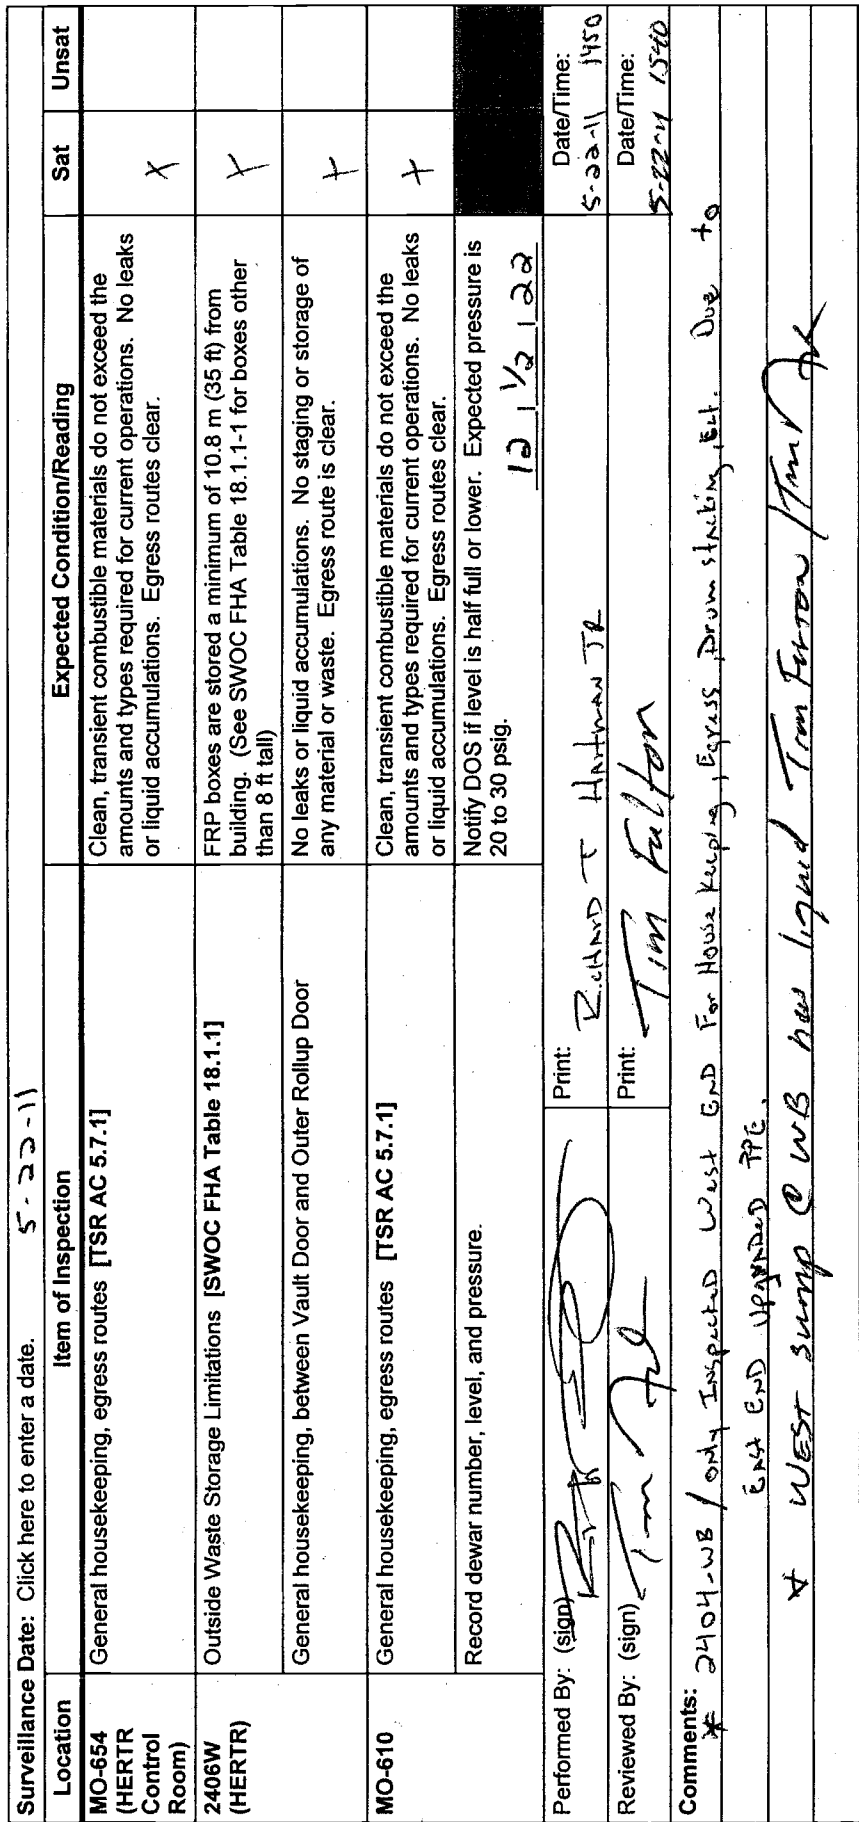 Surveillance Date: Click here to enter a date. 5-22-11
Location Item of Inspection Expected Condition/Reading Sat Unsat
MO-654
(HERTR
Control
Room)
General housekeeping, egress routes [TSR AC 5.7.1]
Clean, transient combustible materials do not exceed the
amounts and types required for current operations. No leaks
or liquid accumulations. Egress routes clear.
X
2406W
(HERTR)
Outside Waste Storage Limitations [SWOC FHA Table 18.1.1]
FRP boxes are stored a minimum of 10.8 m (35 ft) from
building. (See SWOC FHA Table 18.1.1-1 for boxes other
than 8 ft tall)
X
General housekeeping, between Vault Door and Outer Rollup Door
No leaks or liquid accumulations. No staging or storage of
any material or waste. Egress route is clear.
X
MO-610
General housekeeping, egress routes [TSR AC 5.7.1]
Clean, transient combustible materials do not exceed the
amounts and types required for current operations. No leaks
or liquid accumulations. Egress routes clear.
X
Record dewar number, level, and pressure.
Notify DOS if level is half full or lower. Expected pressure is
20 to 30 psig.
12 , 1/2 , 22
Performed By: (sign) Print: Richard T Hartman JR Date/Time:
5-22-11 1450
Reviewed By: (sign) Print: Tim Fulton Date/Time:
5-22-11 1540
Comments:
* 2404-WB / only Inspected West End For House Keeping, Egress, Drum stacking, Ect. Due to
East End Upgraded PPE.
* West sump @ WB has liquid Tim Fulton /